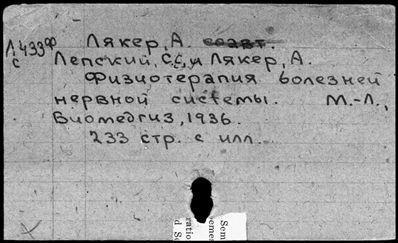 Л433ф Лякер, А. соавт.
с Лепский, С.С. и Лякер, А.
Физиотерапия болезней
нервной системы. М.-Л.,
Биомедгиз, 1936.
233 стр. с илл.
Sem